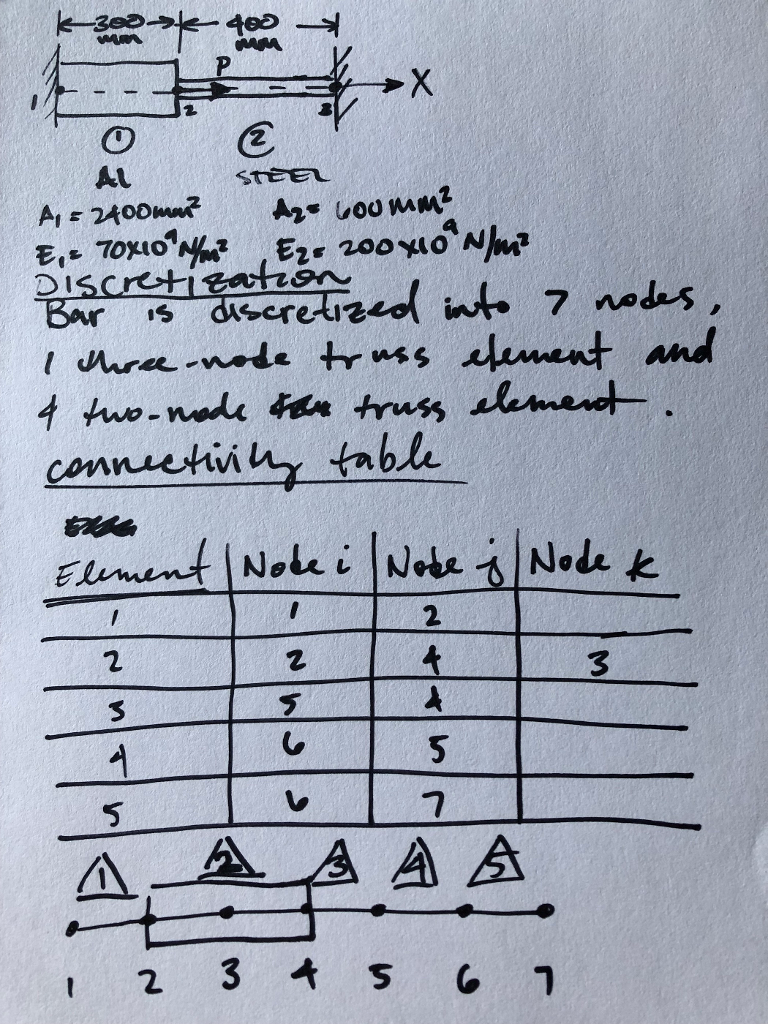 300 mm 400 mm
P
1 2 3 X
① ②
Al STEEL
A₁ = 2400mm² A₂ = 600mm²
E₁ = 70x10⁹ N/m² E₂ = 200x10⁹ N/m²
Discretization
Bar is discretized into 7 nodes,
1 three-node truss element and
4 two-node truss element.
connectivity table
Element Node i Node j Node k
1 1 2
2 2 4 3
3 5 4
4 6 5
5 6 7
1 2 3 4 5
1 2 3 4 5 6 7